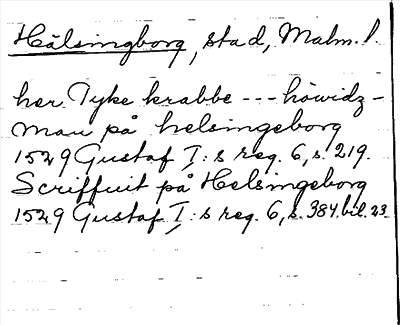 Hälsingborg, stad, Malm. l.
her Tyke krabbe --- höwidz-
man på helsingeborg
1529 Gustaf I:s reg. 6, s. 219.
Scriffuit på Helsingeborg
1529 Gustaf I:s reg. 6, s. 384. bil. 23